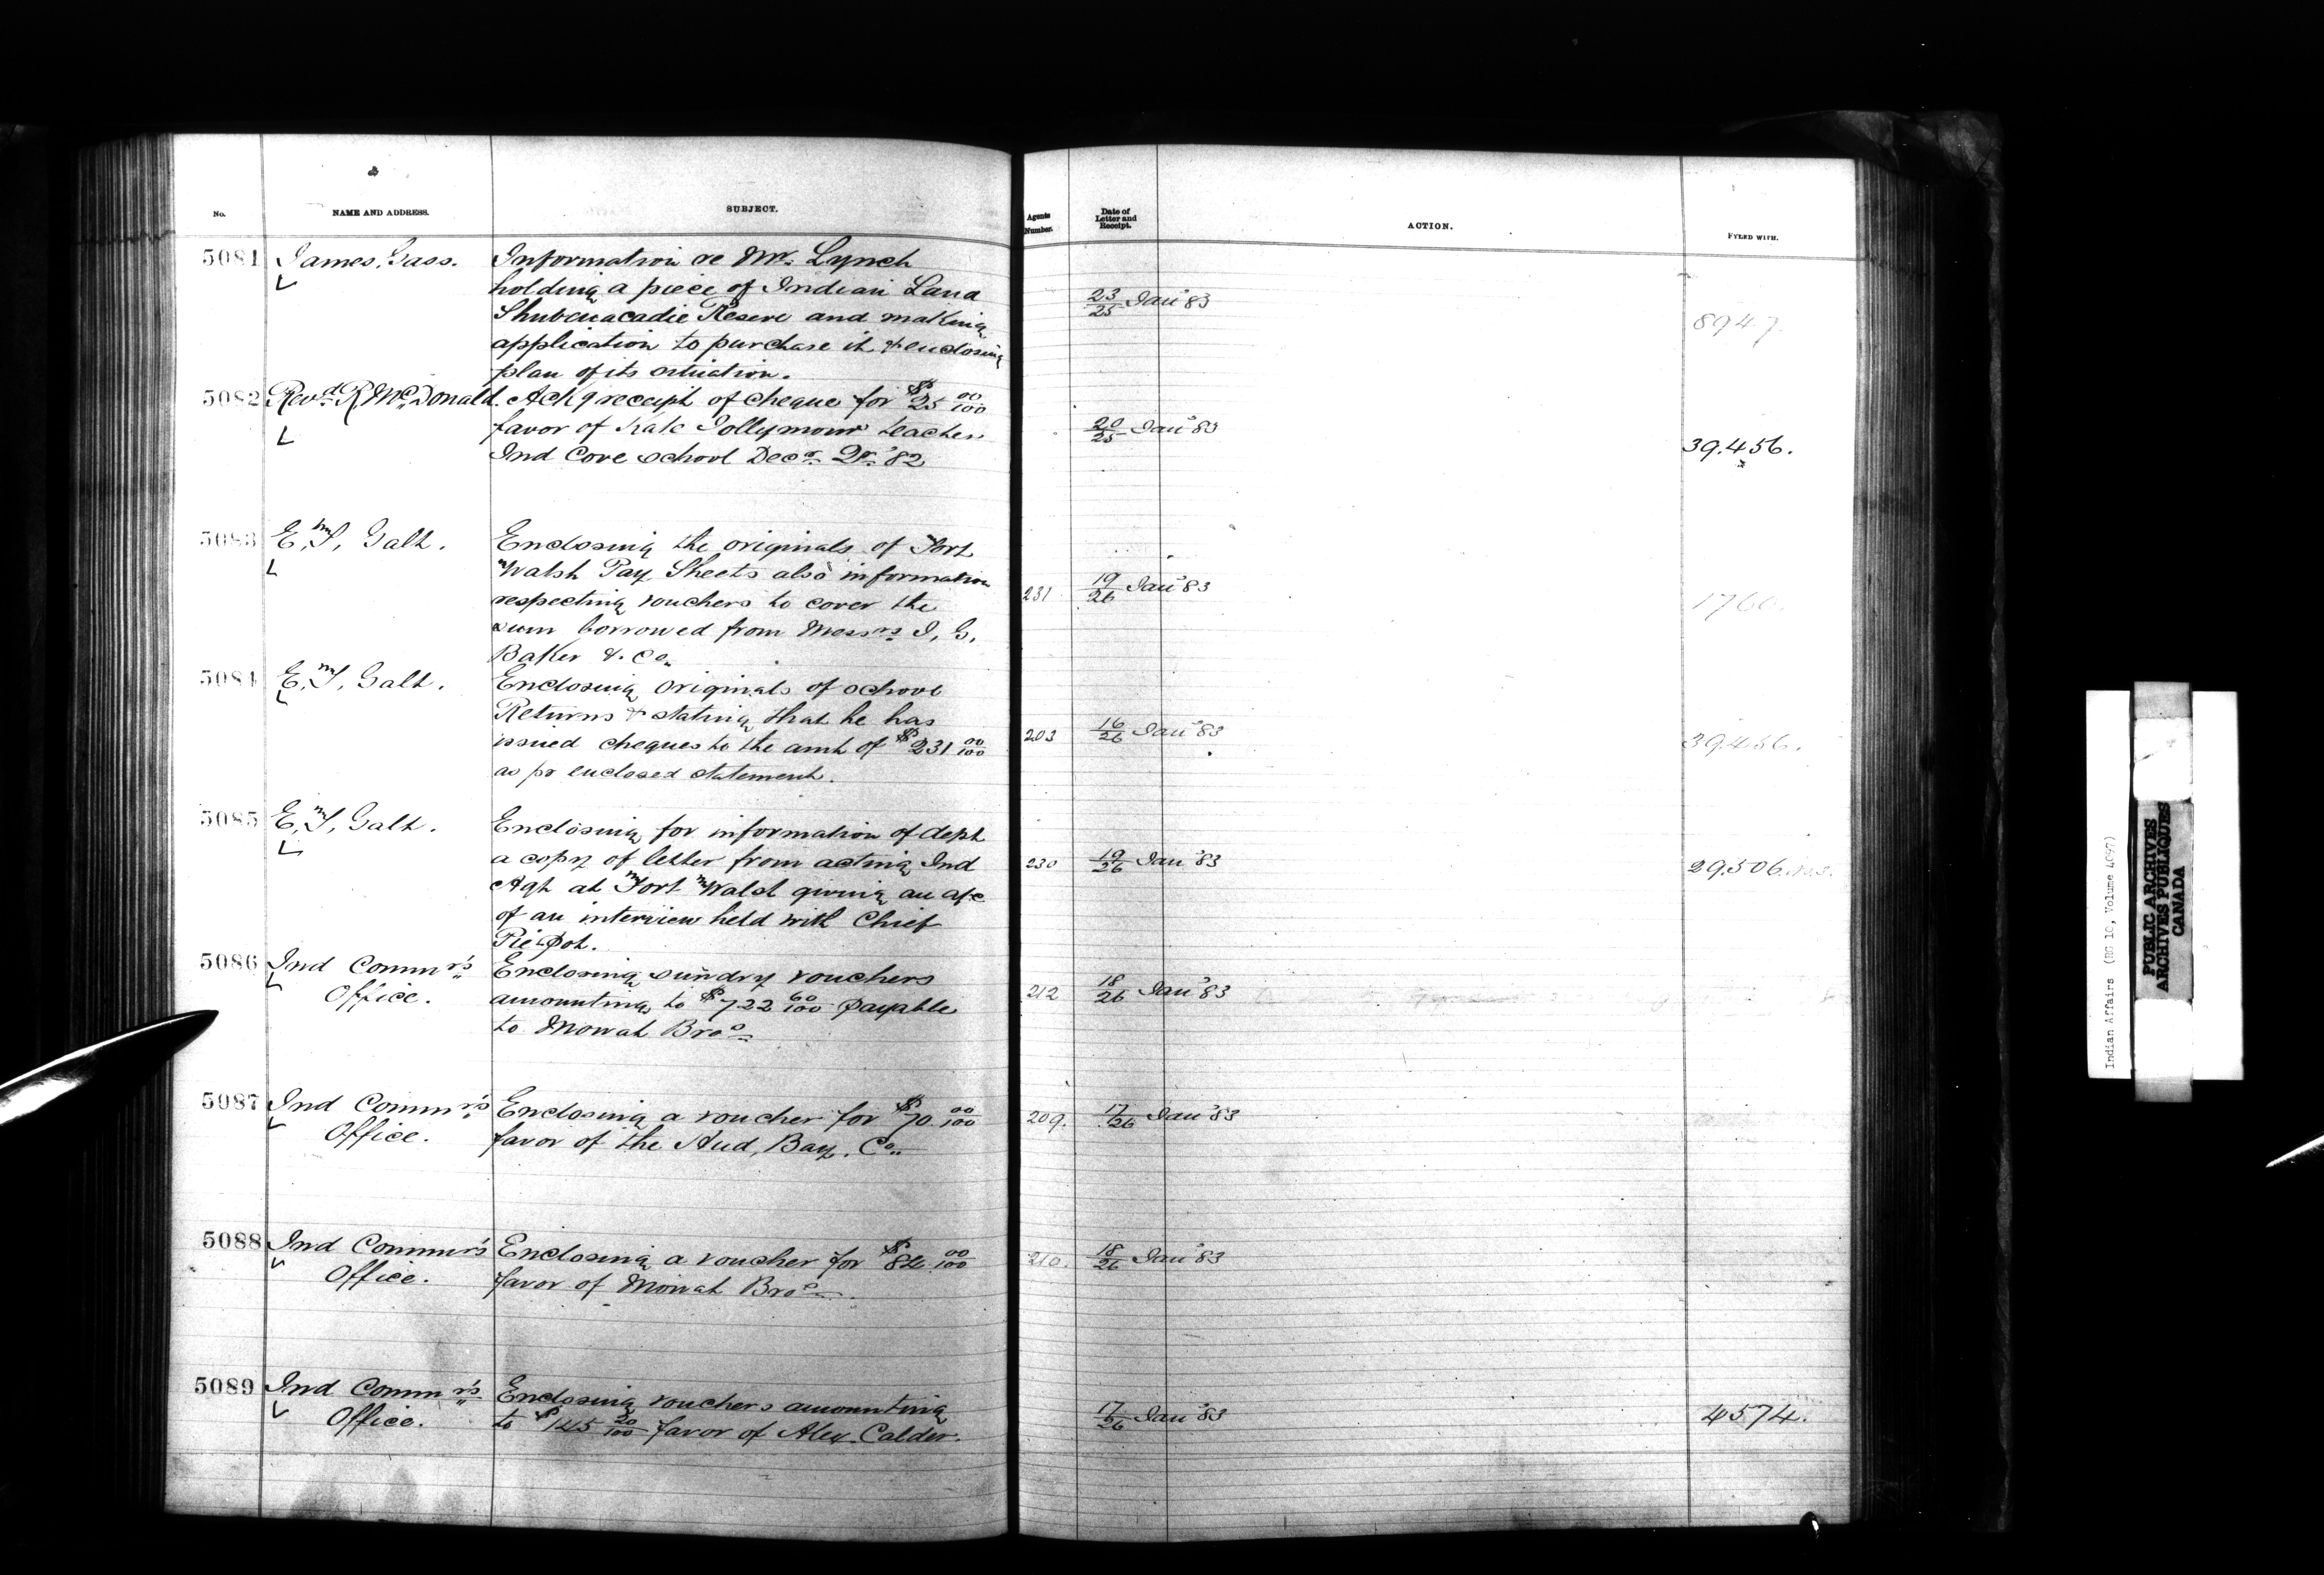 No. NAME AND ADDRESS. SUBJECT. Agents Number. Date of Letter and Receipt. ACTION. FYLED WITH.
5081 James, Gass. Information re Mr. Lynch
holding a piece of Indian Land
Shubenacadie Reserve and making
application to purchase it & enclosing
plan of its situation.
23/25 Jany 83 8947.
5082 Revd. R, McDonald. Ackg receipt of cheque for $25 00/100
favor of Kate Jollymour teacher
Ind Cove school Decr. Qr. '82
20/25 Jany 83 39.456.
5083 E, T, Galt. Enclosing the originals of Fort
Walsh Pay Sheets also information
respecting vouchers to cover the
sum borrowed from Messrs I, G,
Baker & Co.
231 19/26 Jany 83 1760.
5084 E, T, Galt. Enclosing originals of school
Returns & stating that he has
issued cheques to the amt of $231 00/100
as pr enclosed statement.
203 16/26 Jany 83 39.456.
5085 E, T, Galt. Enclosing for information of dept
a copy of letter from acting Ind
Agt at Fort Walsh giving an a/c
of an interview held with Chief
Pie Pot.
230 19/26 Jany 83 29.506.
5086 Ind Commr's Enclosing sundry vouchers
Office. amounting to $722 60/100 payable
to Mowat Bros
212 18/26 Jany 83
5087 Ind Commr's Enclosing a voucher for $70 00/100
Office. favor of the Hud, Bay, Co.
209. 17/26 Jany 83
5088 Ind Commr's Enclosing a voucher for 00/100
Office. favor of Mowat Bros
210. 18/26 Jany 83
5089 Ind Commr's Enclosing vouchers amounting
Office. to $145 20/100 favor of Alex. Calder.
17/26 Jany 83 4574.
Indian Affairs (RG 10, Volume 4097)
PUBLIC ARCHIVES
ARCHIVES PUBLIQUES
CANADA